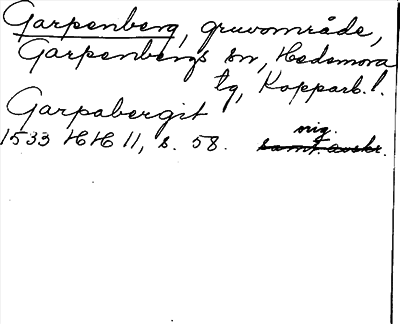 Garpenberg, gruvområde,
Garpenbergs sn, Hedemora
tg, Kopparb. l.
Garpabergit
orig.
1533 HH 11, s. 58. samt. avskr.